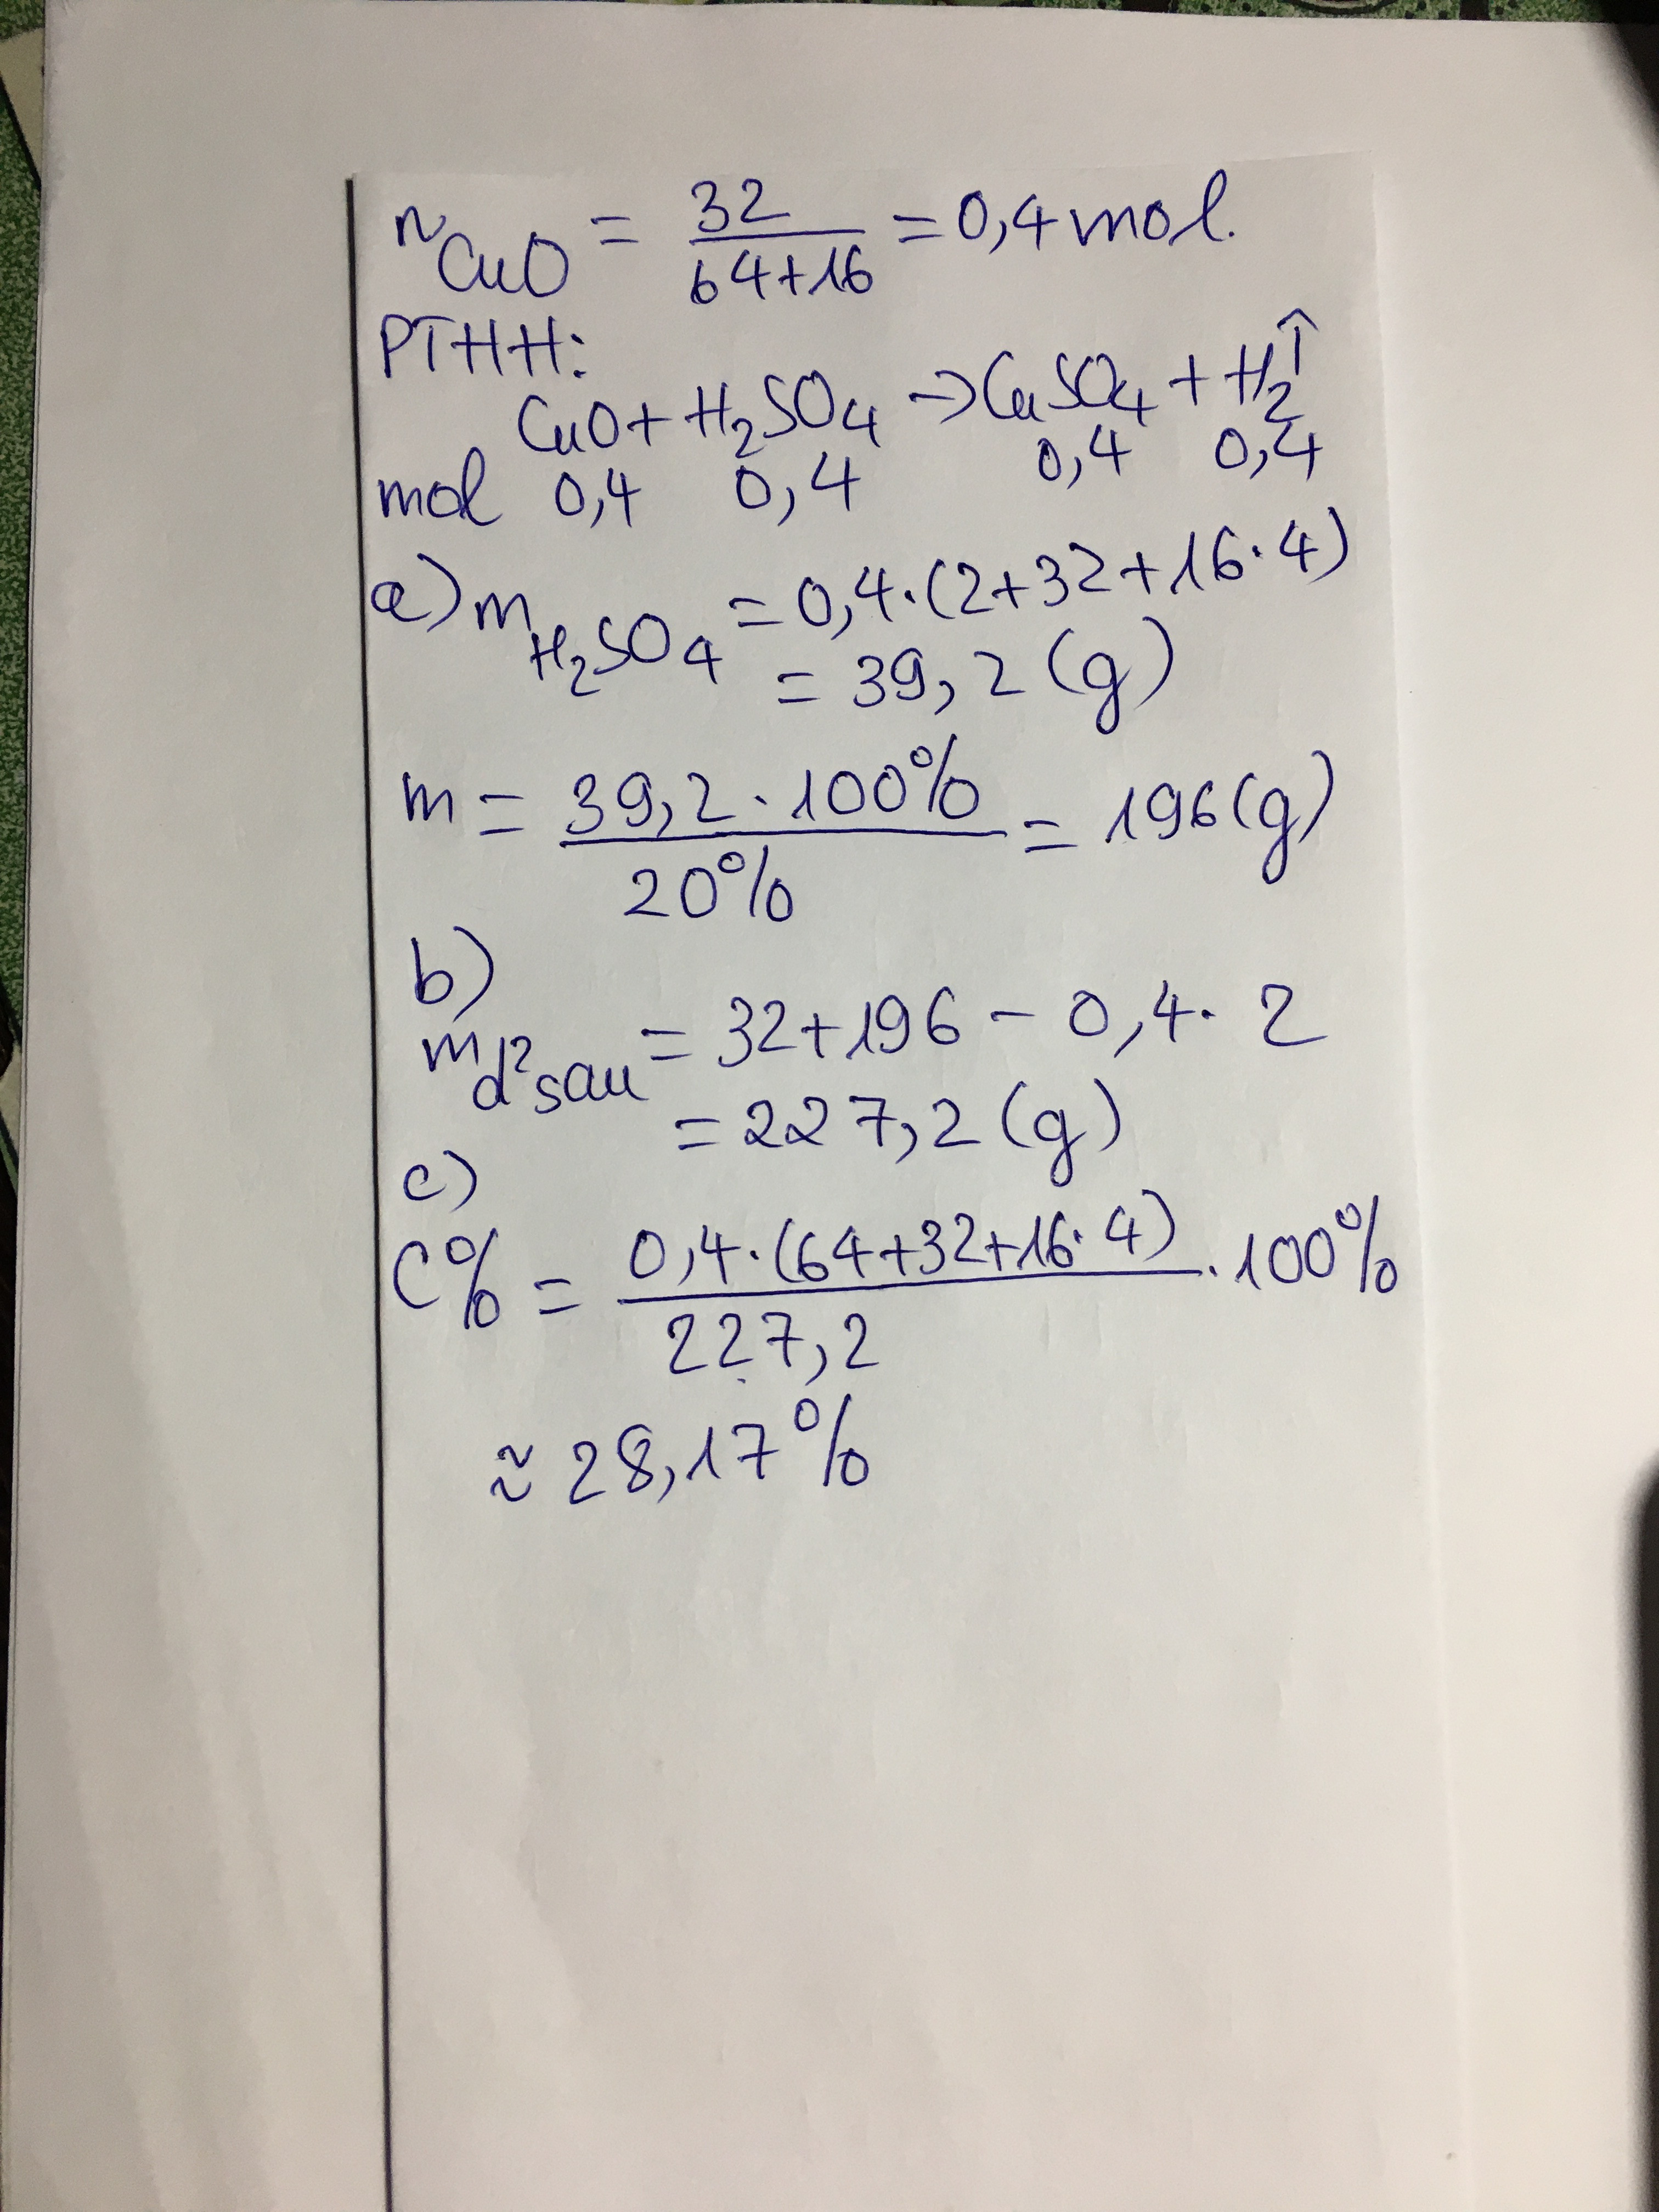 nCuO = 32/(64+16) = 0,4 mol.
PTHH:
CuO + H₂SO₄ → CuSO₄ + H₂↑
mol 0,4 0,4 0,4 0,4
a) mH₂SO₄ = 0,4.(2+32+16.4)
= 39,2 (g)
m = (39,2 . 100%)/20% = 196 (g)
b)
md² sau = 32+196 - 0,4. 2
= 227,2 (g)
c)
C% = 0,4.(64+32+16.4)/227,2 . 100%
≈ 28,17%